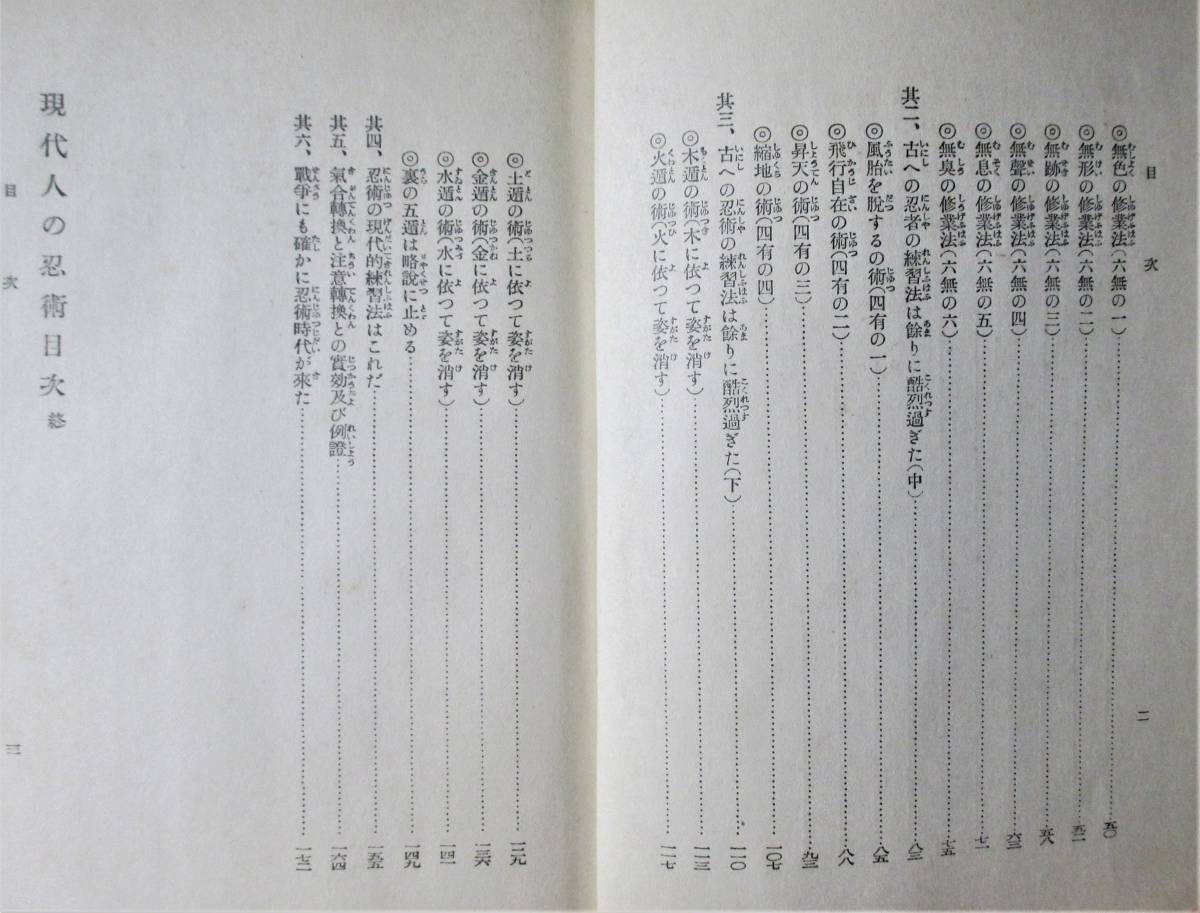 目次
二
◎無色の修業法(六無の一)……五〇
◎無形の修業法(六無の二)……五二
◎無跡の修業法(六無の三)……五八
◎無聲の修業法(六無の四)……六三
◎無息の修業法(六無の五)……七一
◎無臭の修業法(六無の六)……七五
其二、古への忍者の練習法は餘りに酷烈過ぎた(中)……八三
◎風胎を脱するの術(四有の一)……八五
◎飛行自在の術(四有の二)……八八
◎昇天の術(四有の三)……九三
◎縮地の術(四有の四)……一〇七
其三、古への忍術の練習法は餘りに酷烈過ぎた(下)……一一〇
◎木遁の術(木に依つて姿を消す)……一一三
◎火遁の術(火に依つて姿を消す)……一一七
◎土遁の術(土に依つて姿を消す)……一二九
◎金遁の術(金に依つて姿を消す)……一三六
◎水遁の術(水に依つて姿を消す)……一四一
◎裏の五遁は略說に止める……一四九
其四、忍術の現代的練習法はこれだ……一五五
其五、氣合轉換と注意轉換との實効及び例證……一六四
其六、戰爭にも確かに忍術時代が來た……一七二
現代人の忍術目次終
目次
三